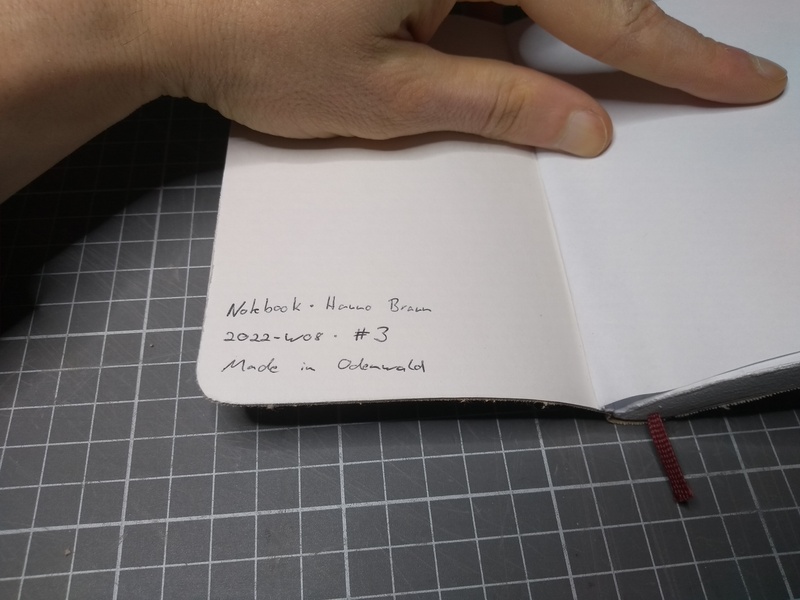 Notebook · Hanno Braun
2022-W08 · #3
Made in Odenwald